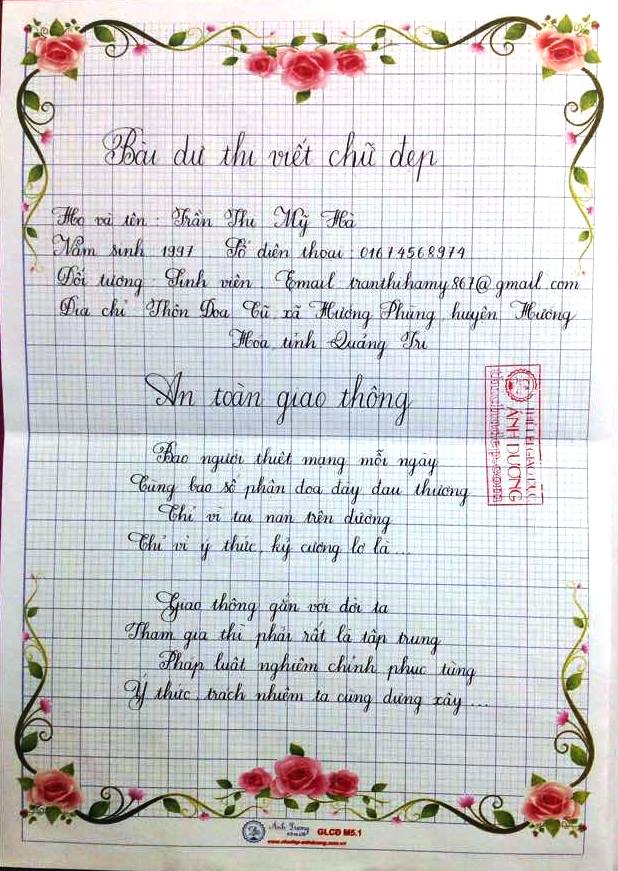 Bài dự thi viết chữ đẹp
Họ và tên : Trần Thị Mỹ Hà
Năm sinh 1997 Số điện thoại : 01674568974
Đối tượng : Sinh viên Email tranthihamy867@gmail.com
Địa chỉ Thôn Doa Cũ xã Hướng Phùng, huyện Hướng
Hóa tỉnh Quảng Trị
An toàn giao thông
ÁNH DƯƠNG
Bao người thiệt mạng mỗi ngày
Cùng bao số phận đọa đày đau thương
Chỉ vì tai nạn trên đường
Chỉ vì ý thức, kỷ cương lơ là ...
Giao thông gắn với đời ta
Tham gia thì phải rất là tập trung
Pháp luật nghiêm chỉnh phục tùng
Ý thức, trách nhiệm ta cùng dựng xây ...
Ánh Dương
GLCĐ M5.1